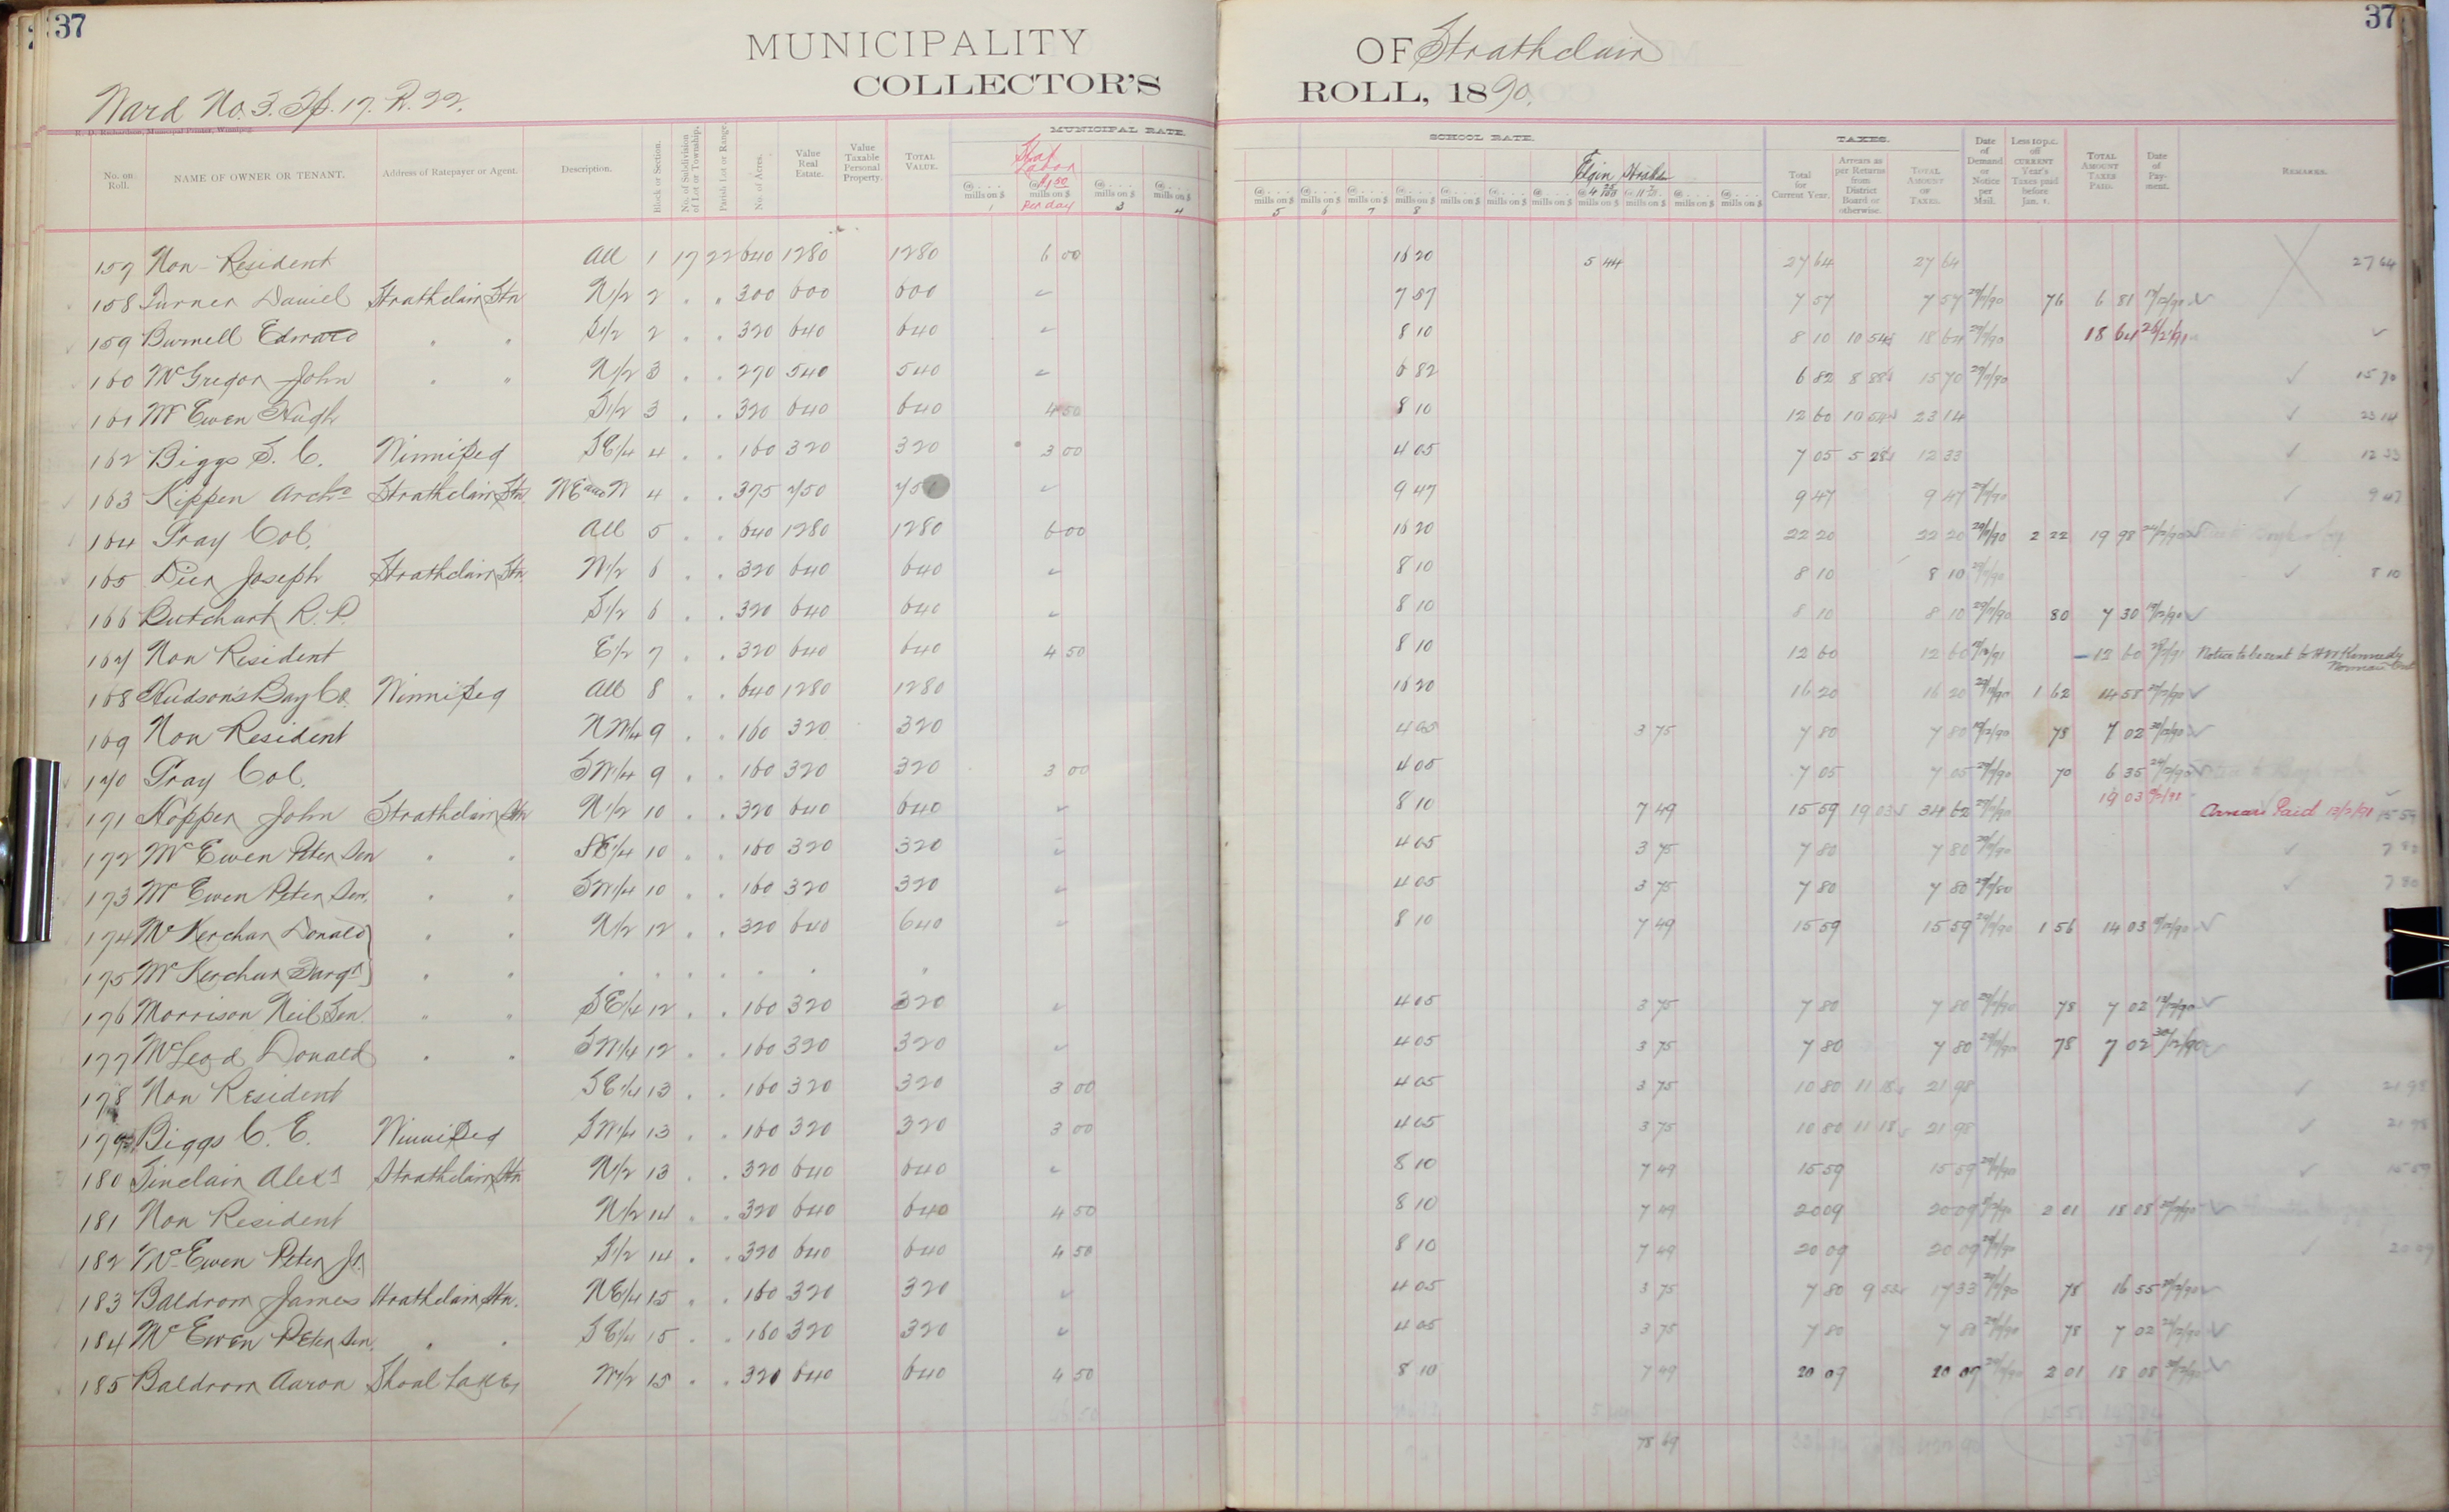 37 37
MUNICIPALITY OF Strathclair
COLLECTOR'S ROLL, 1890.
Ward No. 3. Tp. 17. R. 22.
R. D. Richardson, Municipal Printer, Winnipeg.
MUNICIPAL RATE. SCHOOL RATE. TAXES.
No. on Roll. NAME OF OWNER OR TENANT. Address of Ratepayer or Agent. Description. Block or Section. No. of Subdivision of Lot or Township. Parish Lot or Range. No. of Acres. Value Real Estate. Value Taxable Personal Property. TOTAL VALUE. @ .... mills on $ 1 Stat Labor @ $1.50 mills on $ Per day @ .... mills on $ 3 @ .... mills on $ 4 @ .... mills on $ 5 @ .... mills on $ 6 @ .... mills on $ 7 @ .... mills on $ 8 Elgin Total for Current Year. Arrears as per Returns from District Board or otherwise. TOTAL AMOUNT OF TAXES. Date of Demand or Notice per Mail. Less 10 p.c. off CURRENT Year's Taxes paid before Jan. 1. TOTAL AMOUNT TAXES PAID. Date of Payment. REMARKS.
157 Non-Resident All 1 17 22 640 1280 1280 6 00 16 20 5 44 27 64 27 64 27 64
158 Turner Daniel Strathclair Stn N1/2 2 " " 300 600 600 7 57 7 57 7 57 76 6 81
159 Burnell Edward " " S1/2 2 " " 320 640 640 8 10 8 10 10 54 18 64 18 64
160 McGregor John " " N1/2 3 " " 270 540 540 6 82 6 82 8 88 15 70 15 70
161 McEwen Hugh S1/2 3 " " 320 640 640 4 50 8 10 12 60 10 54 23 14 23 14
162 Biggs S. C. Winnipeg SE1/4 4 " " 160 320 320 3 00 4 05 7 05 5 28 12 33 12 33
163 Kippen Archd Strathclair Stn NE and W 4 " " 375 750 750 9 47 9 47 9 47 9 47
164 Gray Col. All 5 " " 640 1280 1280 6 00 16 20 22 20 22 20 2 22 19 98
165 Dier Joseph Strathclair Stn N1/2 6 " " 320 640 640 8 10 8 10 8 10 8 10
166 Butchart R. P. S1/2 6 " " 320 640 640 8 10 8 10 8 10 80 7 30
167 Non Resident E1/2 7 " " 320 640 640 4 50 8 10 12 60 12 60 12 60 Notice to be sent to Kennedy
168 Hudson's Bay Co. Winnipeg All 8 " " 640 1280 1280 16 20 16 20 16 20 1 62 14 58
169 Non Resident NW1/4 9 " " 160 320 320 4 05 3 75 7 80 7 80 78 7 02
170 Gray Col. SW1/4 9 " " 160 320 320 3 00 4 05 7 05 7 05 70 6 35
171 Hopper John Strathclair Stn N1/2 10 " " 320 640 640 8 10 7 49 15 59 19 03 34 62 19 03 Arrears Paid 13/2/91 15 59
172 McEwen Peter Sen " " SE1/4 10 " " 160 320 320 4 05 3 75 7 80 7 80 7 80
173 McEwen Peter Sen. " " SW1/4 10 " " 160 320 320 4 05 3 75 7 80 7 80 7 80
174 McKerchar Donald " " N1/2 12 " " 320 640 640 8 10 7 49 15 59 15 59 1 56 14 03
175 McKerchar Fargr " " " " " " " " "
176 Morrison Neil Sen. " " SE1/4 12 " " 160 320 320 4 05 3 75 7 80 7 80 78 7 02
177 McLeod Donald " " SW1/4 12 " " 160 320 320 4 05 3 75 7 80 7 80 78 7 02
178 Non Resident SE1/4 13 " " 160 320 320 3 00 4 05 3 75 10 80 11 18 21 98 21 98
179 Biggs C. E. Winnipeg SW1/4 13 " " 160 320 320 3 00 4 05 3 75 10 80 11 18 21 98 21 98
180 Sinclair Alexr Strathclair Stn N1/2 13 " " 320 640 640 8 10 7 49 15 59 15 59 15 59
181 Non Resident N1/2 14 " " 320 640 640 4 50 8 10 7 49 20 09 20 09 2 01 18 08
182 McEwen Peter Jr. S1/2 14 " " 320 640 640 4 50 8 10 7 49 20 09 20 09 20 09
183 Baldrom James Strathclair Stn. NE1/4 15 " " 160 320 320 4 05 3 75 7 80 9 53 17 33 78 16 55
184 McEwen Peter Sen. " " SE1/4 15 " " 160 320 320 4 05 3 75 7 80 7 80 78 7 02
185 Baldrom Aaron Shoal Lake W1/2 15 " " 320 640 640 4 50 8 10 7 49 20 09 20 09 2 01 18 08
78 69